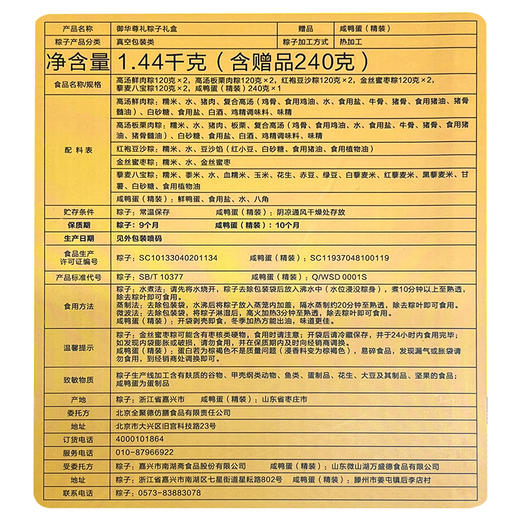 产品名称 御华尊礼粽子礼盒 赠品 咸鸭蛋（精装）
粽子产品分类 真空包装类 粽子加工方式 热加工
净含量 1.44千克（含赠品240克）
食品名称/规格
高汤鲜肉粽120克×2，高汤板栗肉粽120克×2，红袍豆沙粽120克×2，金丝蜜枣粽120克×2，
藜麦八宝粽120克×2，咸鸭蛋（精装）240克×1
配 料 表
高汤鲜肉粽：糯米、水、猪肉、复合高汤（鸡骨、食用鸡油、水、食用盐、牛骨、猪骨、食用猪油、猪骨
髓油）、白砂糖、食用盐、白酒、鸡精调味料、味精
高汤板栗肉粽：糯米、水、猪肉、板栗、复合高汤（鸡骨、食用鸡油、水、食用盐、牛骨、猪骨、食用猪油、
猪骨髓油）、白砂糖、食用盐、白酒、鸡精调味料、味精
红袍豆沙粽：糯米、水、豆沙馅（红小豆、白砂糖、食用猪油、食用植物油）
金丝蜜枣粽：糯米、水、金丝蜜枣
藜麦八宝粽：糯米、黍米、水、血糯米、玉米、花生、赤豆、绿豆、白藜麦米、红藜麦米、黑藜麦米、甘
薯、白砂糖、食用植物油
咸鸭蛋（精装）：鲜鸭蛋、食用盐、水、八角
贮存条件 粽子：常温保存 咸鸭蛋（精装）：阴凉通风干燥处存放
保质期 粽子：9个月 咸鸭蛋（精装）：10个月
生产日期 见外包装喷码
食品生产
许可证编号
粽子：SC10133040201134 咸鸭蛋（精装）：SC11937048100119
产品标准代号 粽子：SB/T 10377 咸鸭蛋（精装）：Q/WSD 0001S
食用方法
粽子：水煮法：请先将水烧开，粽子去除包装袋后放入沸水中（水位浸没粽身），煮10分钟以上至熟透，
除去粽叶即可食用。
蒸制法：去除包装袋，水沸后将粽子放入蒸笼内加盖，隔水蒸制约20分钟至熟透，除去粽叶即可食用。
微波法：去除包装袋，将粽子淋湿后，高火加热3分钟至熟透，除去粽叶即可食用。
咸鸭蛋（精装）：开袋剥壳即食，冬季加热方能出油，味道更佳。
温馨提示
粽子：金丝蜜枣粽可能含有枣核类硬物，食用时请注意；开袋后请冷藏保存，并于24小时内食用完毕；
如发现内袋膨胀或破损，请勿食用，并在保质期内及时向经销商调换。
咸鸭蛋（精装）：蛋白若为棕褐色不是质量问题（浸香料变为棕褐色），易碎食品，发现漏气或胀袋请
勿食用，到经销商处调换即可。
致敏物质
粽子生产线加工含有麸质的谷物、甲壳纲类动物、鱼类、蛋制品、花生、大豆及其制品、坚果的食品；
咸鸭蛋为蛋制品
产 地 粽子：浙江省嘉兴市 咸鸭蛋（精装）：山东省枣庄市
委托方 北京全聚德仿膳食品有限责任公司
地 址 北京市大兴区旧宫科技路23号
订货电话 4000101864
服务电话 010-87966922
受委托方 粽子：嘉兴市南湖斋食品股份有限公司 咸鸭蛋（精装）：山东微山湖万盛德食品有限公司
地 址 粽子：浙江省嘉兴市南湖区七星街道星耘路802号 咸鸭蛋（精装）：滕州市姜屯镇后李店村
联系电话 粽子：0573-83883078